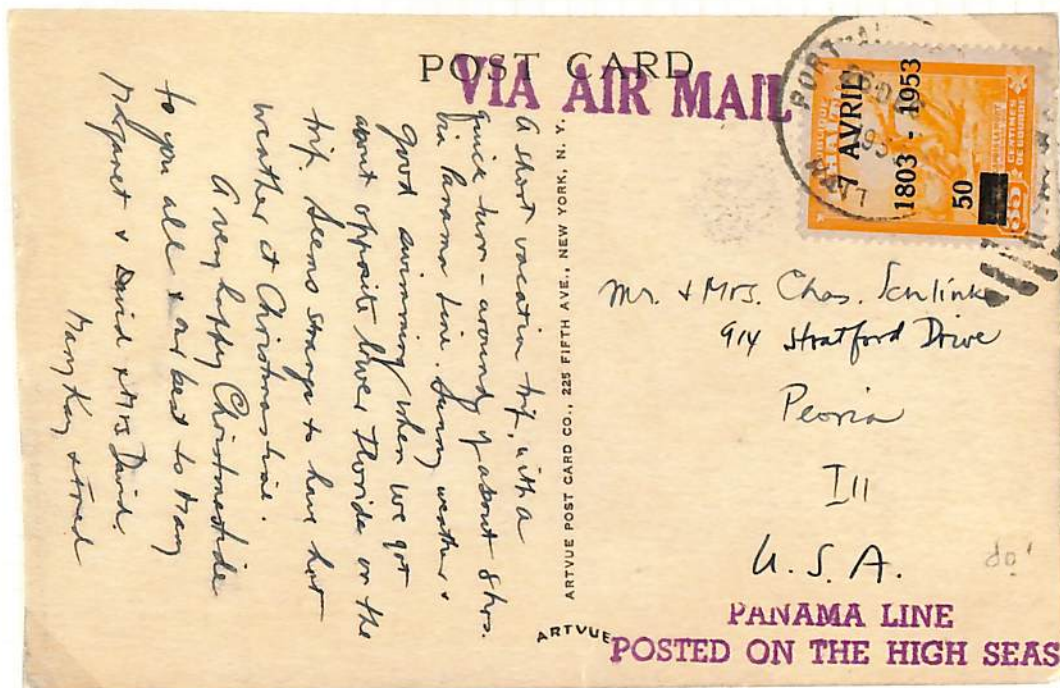 POST CARD
VIA AIR MAIL
A short vacation trip, with a
quick turn-around of about 8 hrs.
via Panama Line. Sunny weather &
good swimming when we got
about opposite lower Florida on the
trip. Seems strange to have hot
weather at Christmastime.
A very happy Christmastide
to you all & our best to Mary
Margaret & David & Mrs David.
Mary Kay & Fred
ARTVUE POST CARD CO., 225 FIFTH AVE., NEW YORK, N. Y.
ARTVUE
PORT-AU
HAITI
7 AVRIL
1803 - 1953
50
35
CENTIMES
DE GOURDE
Mr. & Mrs. Chas. Schlink
914 Stratford Drive
Peoria
Ill
U.S.A.
PANAMA LINE
POSTED ON THE HIGH SEAS